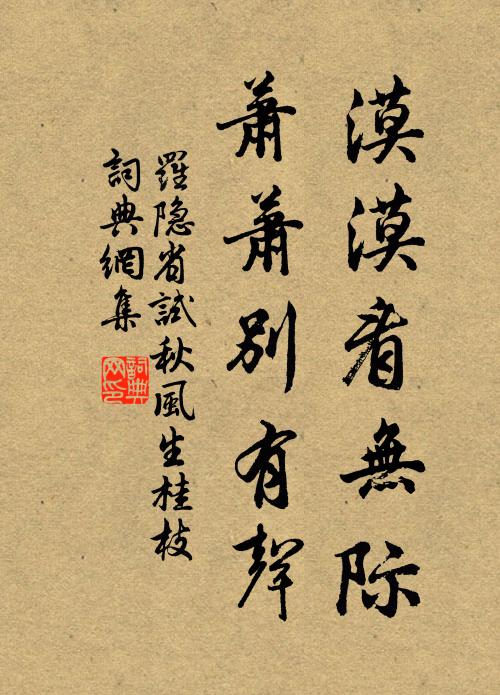 漠漠看無际
蕭蕭別有聲
羅隐省試秋風生桂枝
詞典網集
詞典
网印